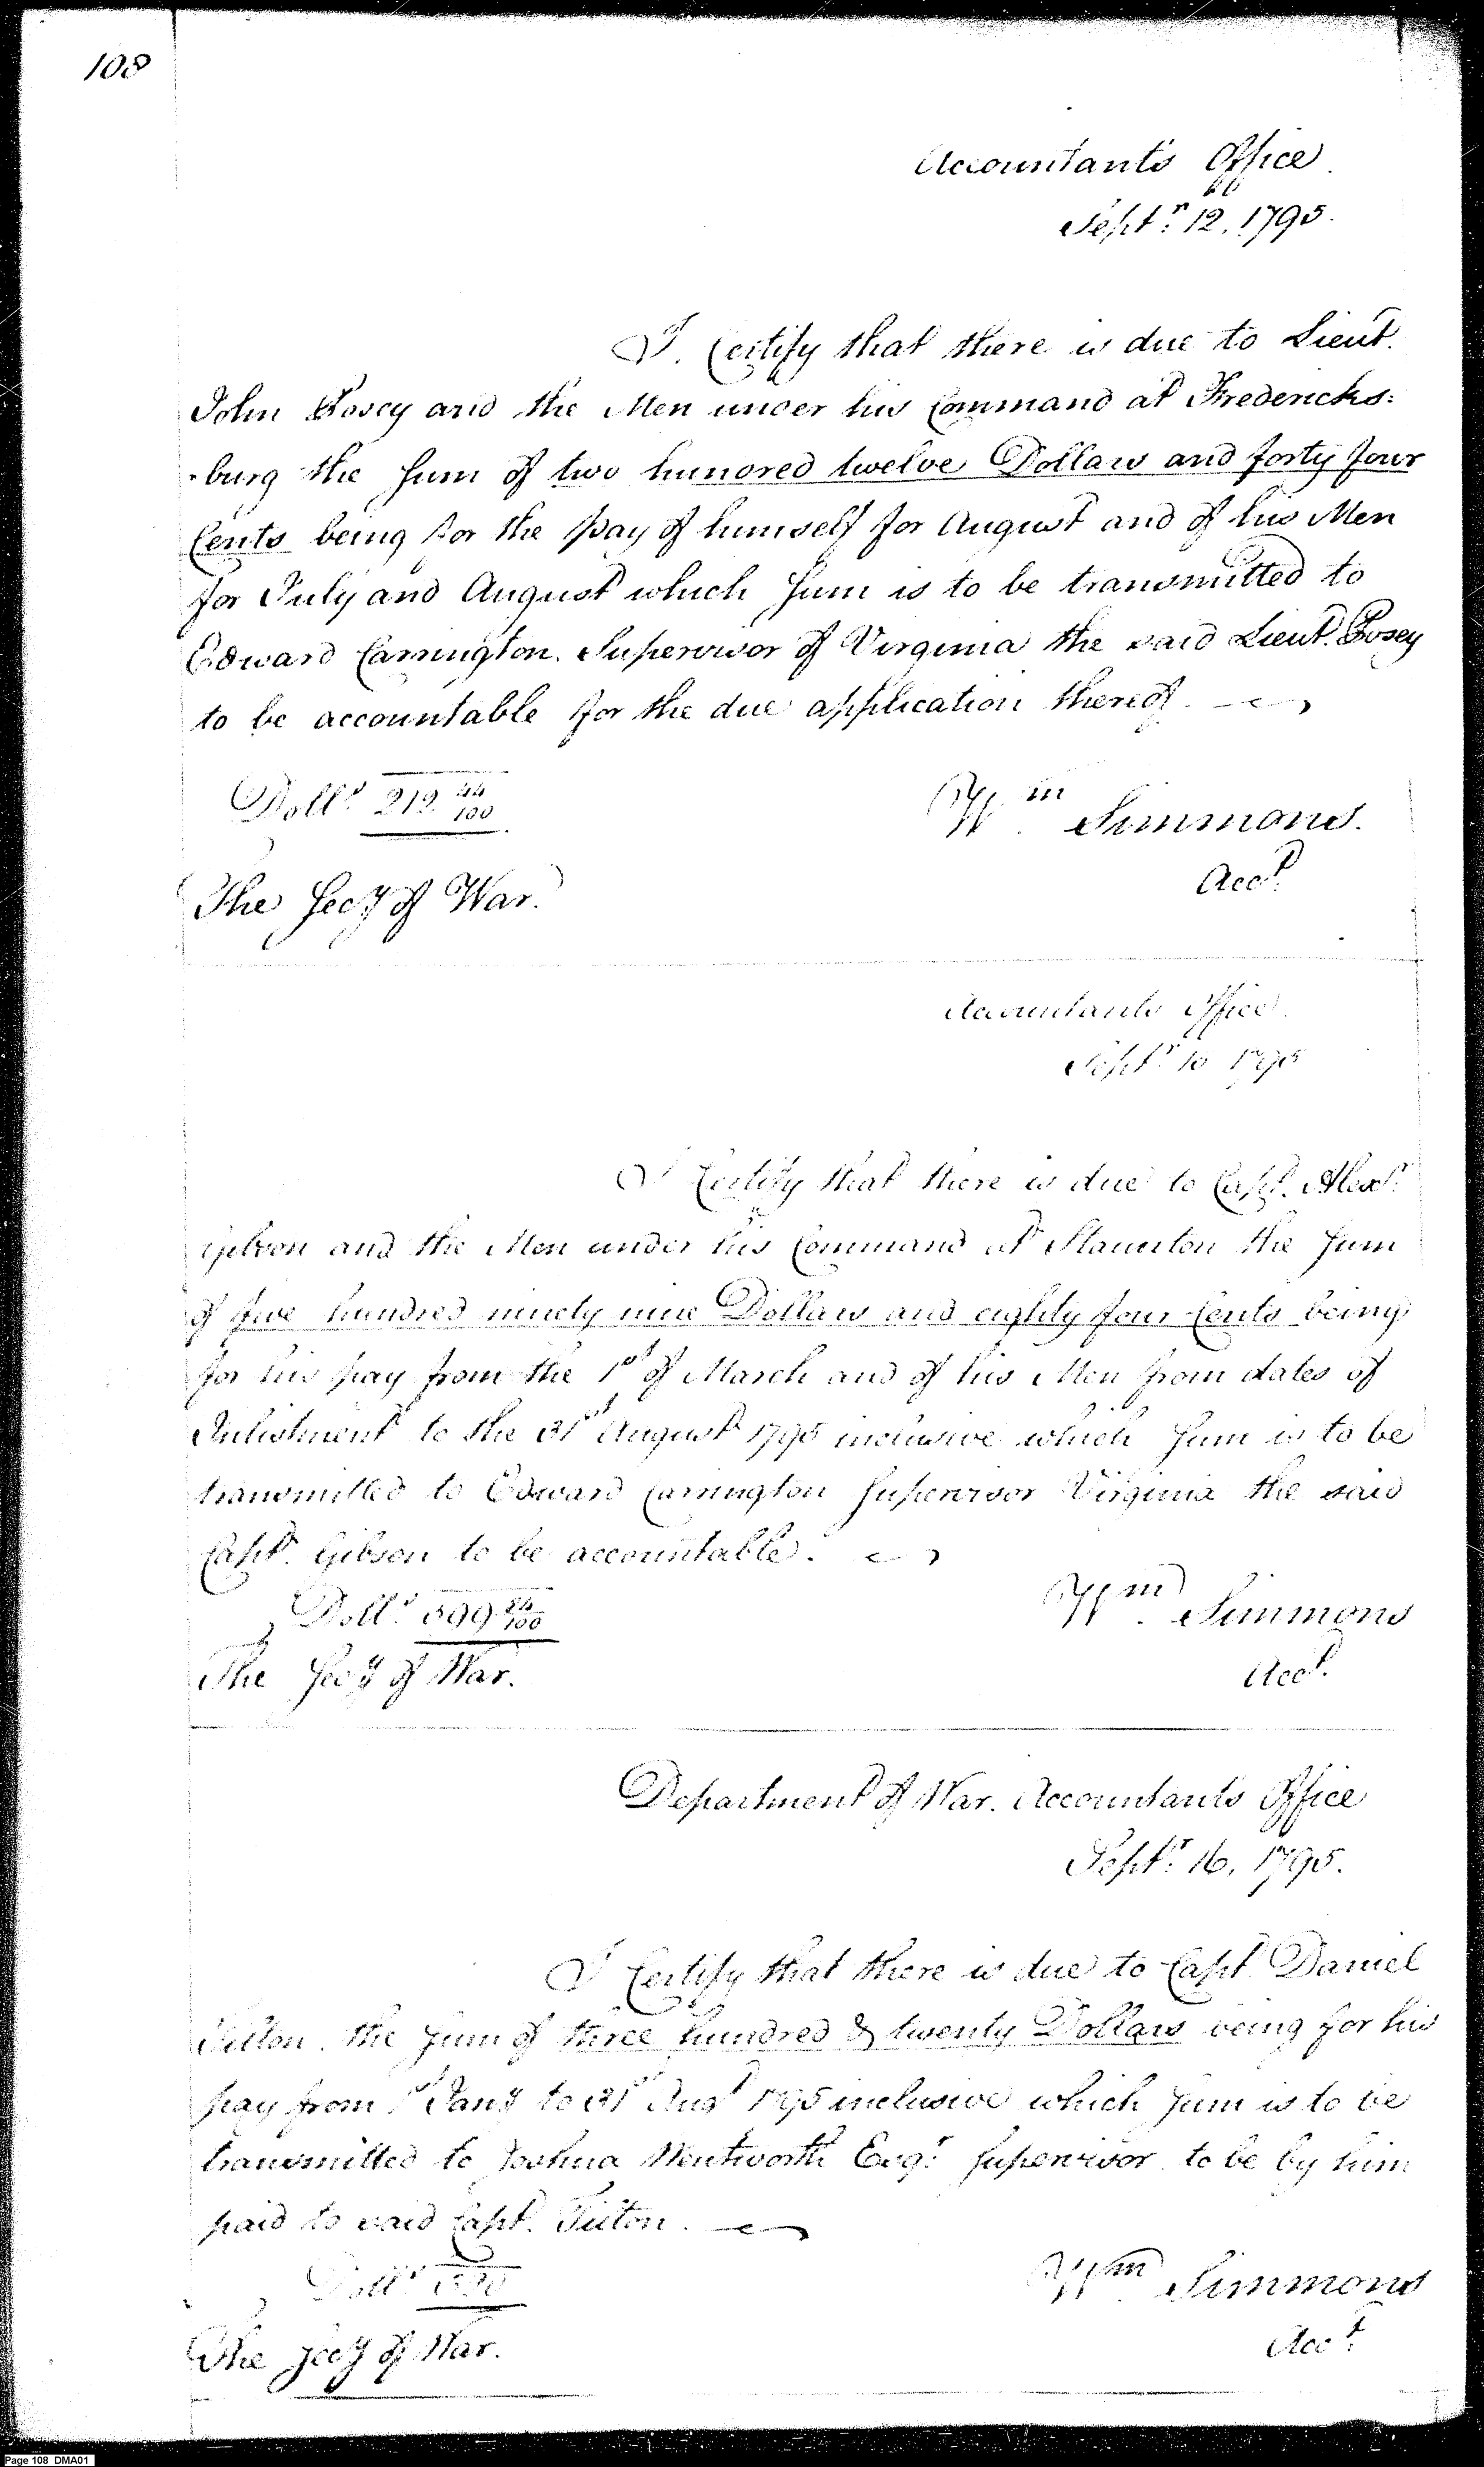 108
Accountants Office
Septr. 12. 1795.
I Certify that there is due to Lieut.
John Posey and the Men under his Command at Fredericks:
-burg the Sum of two hundred twelve Dollars and forty four
Cents being for the pay of himself for August and of his Men
for July and August which Sum is to be transmitted to
Edward Carrington. Supervisor of Virginia the said Lieut. Posey
to be accountable for the due application thereof.
Dolls. 212 44/100
Wm. Simmons.
Acct.
The Secy of War.
Accountants Office.
Septr. 1795
I Certify that there is due to Capt. Alexr.
Gibson and the Men under his Command at Staunton the Sum
of five hundred ninety nine Dollars and eighty four Cents being
for his pay from the 1st of March and of his Men from dates of
Inlistment to the 31st August 1795 inclusive which Sum is to be
transmitted to Edward Carrington Supervisor Virginia the said
Capt. Gibson to be accountable.
Dolls. 599 84/100
Wm. Simmons
Acct.
The Secy of War.
Department of War. Accountants Office
Septr. 16, 1795.
I Certify that there is due to Capt. Daniel
Tilton. the Sum of three hundred & twenty Dollars being for his
pay from 1st Jany to 31st Augt 1795 inclusive which Sum is to be
transmitted to Joshua Wentworth Esqr. Supervisor to be by him
paid to said Capt. Tilton.
Dolls. 320
Wm. Simmons
Acct.
The Secy of War.
Page 108 DMA01